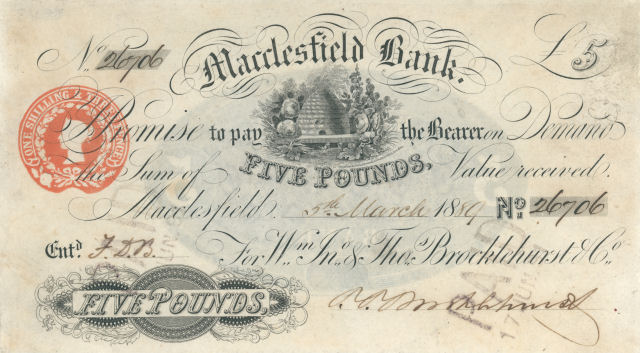 No. 26706
Macclesfield Bank.
£5
ONE SHILLING & THREE PENCE
I Promise to pay the Bearer on Demand
FIVE POUNDS,
the Sum of Value received.
Macclesfield. 5th March 1889 No. 26706
Entd. F.D.B.
For Wm. Jno. & Thos. Brocklehurst & Co.
FIVE POUNDS.